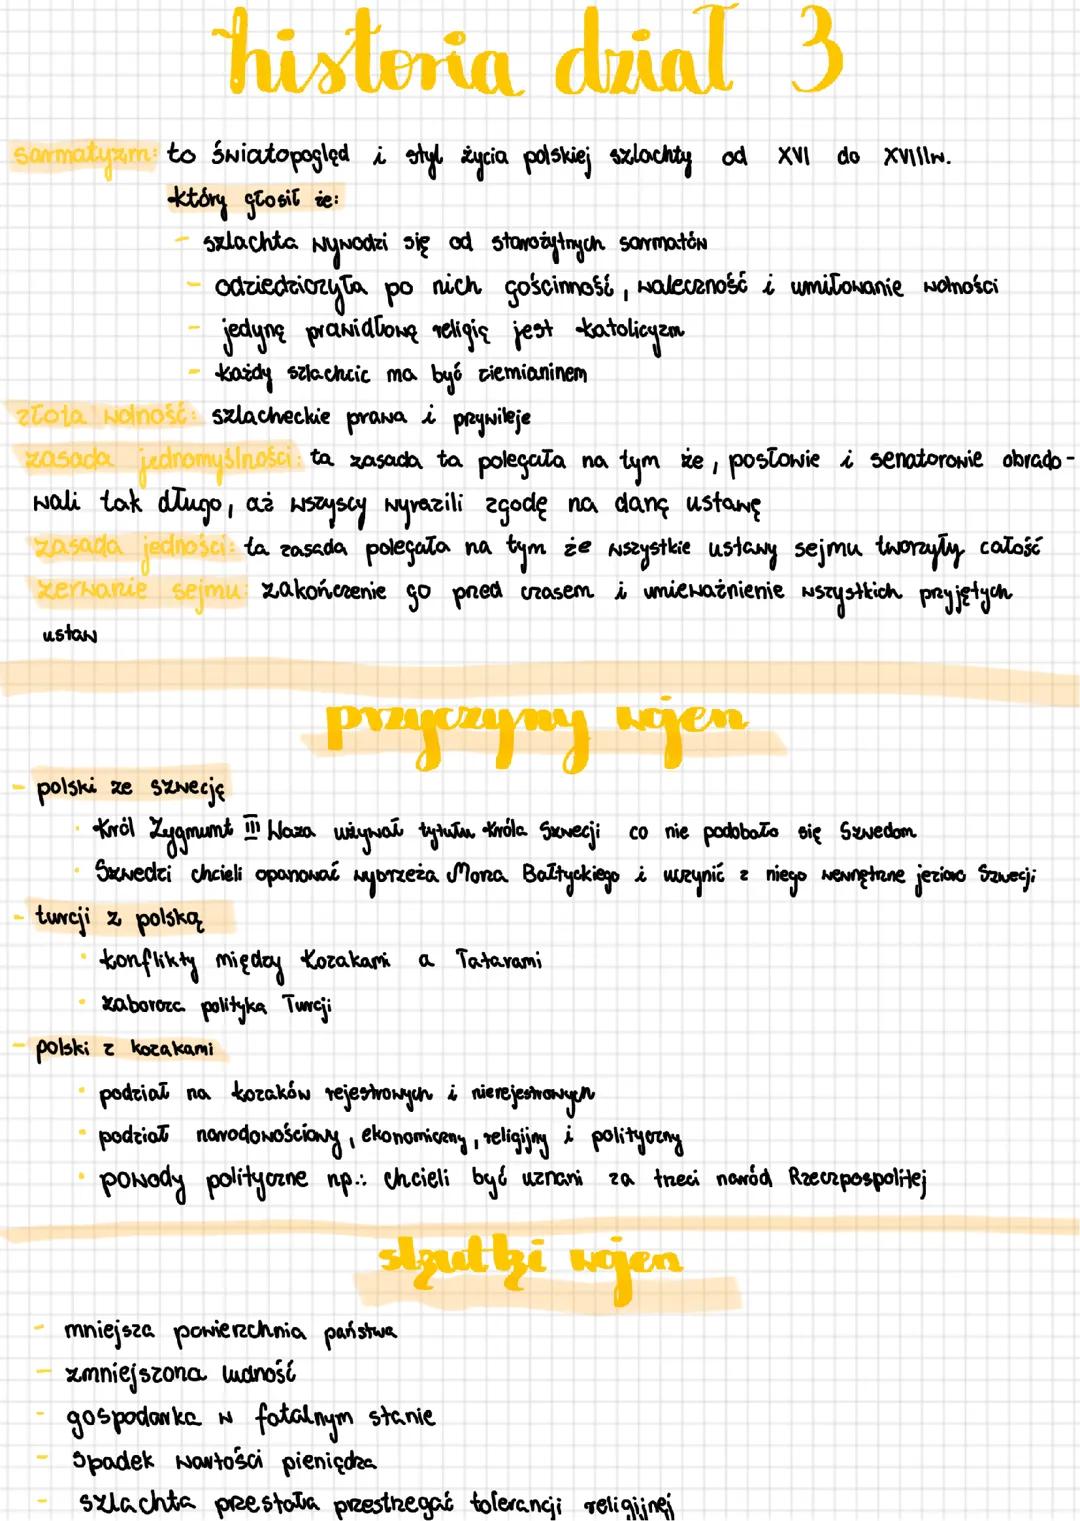 historia dział 3
sarmatyzm: to światopogląd i styl życia polskiej szlachty od XVI do XVIIIw.
który głosił że:
- szlachta wywodzi się od starożytnych sarmatów
- odziedziczyła po nich gościnność, waleczność i umiłowanie wolności
- jedyną prawidłową religią jest katolicyzm
- każdy szlachcic ma być ziemianinem
złota wolność: szlacheckie prawa i przywileje
zasada jednomyślności: ta zasada ta polegała na tym że, posłowie i senatorowie obrado-
wali tak długo, aż wszyscy wyrazili zgodę na daną ustawę
zasada jedności: ta zasada polegała na tym że wszystkie ustawy sejmu tworzyły całość
zerwanie sejmu: zakończenie go pred czasem i unieważnienie wszystkich pryjętych
ustaw
przyczyny wojen
- polski ze szwecją
· Król Zygmunt III Waza używał tytułu króla Szwecji co nie podobało się Szwedom
· Szwedzi chcieli opanować wybrzeża Morza Bałtyckiego i uczynić z niego wewnętrzne jezioro Szwecji
- turcji z polską
· konflikty między Kozakami a Tatarami
· zaborcza polityka Turcji
- polski z kozakami
· podział na kozaków rejestrowych i nierejestrowych
· podział narodowościowy, ekonomiczny, religijny i polityczny
· powody polityczne np.: chcieli być uznani za treci naród Rzeczpospolitej
skutki wojen
- mniejsza powierzchnia państwa
- zmniejszona ludność
- gospodarka w fatalnym stanie
- spadek wartości pieniędza
- szlachta prestała przestrzegać tolerancji religijnej